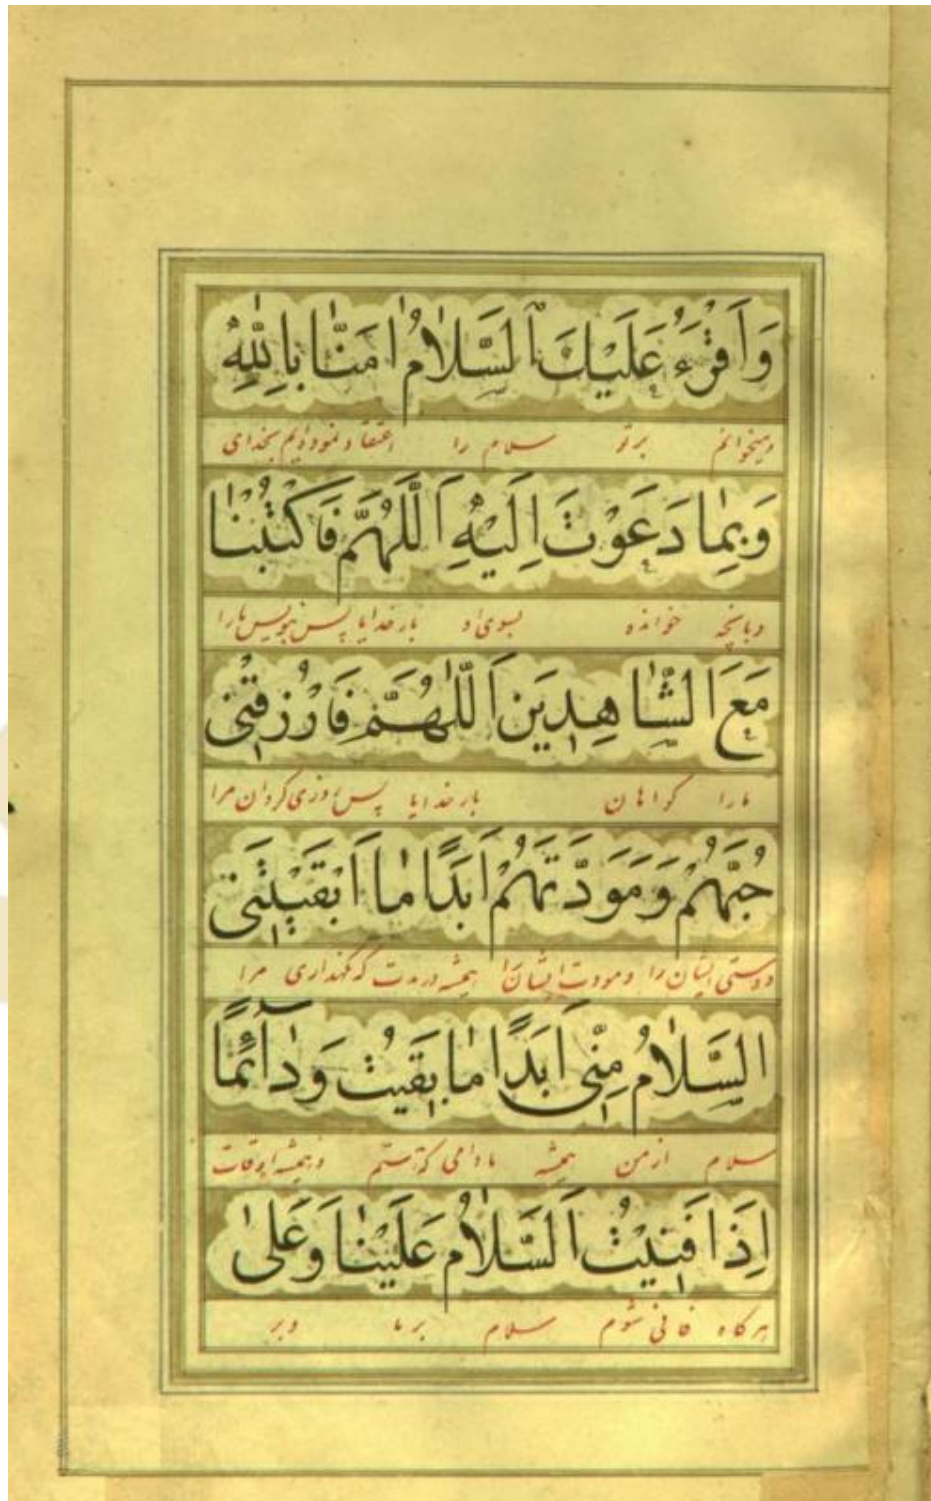 وَاَقْرَءُ عَلَيْكَ اَلسَّلَامُ امَنَّا بِاللّٰهِ
میخوانم بر تو سلام را اعتقاد نموده‌ایم بخدای
وَبِمٰا دَعَوْتَ اِلَيْهِ اَللّٰهُمَّ فَاكْتُبْنٰا
و بانچه خوانده بسوی او بار خدایا پس بنویس مارا
مَعَ الشّٰاهِدِيَن اَللّٰهُمَّ فَارْزُقْنِى
مارا گواهان بار خدایا پس روزی گردان مرا
حُبَّهُمْ وَمَوَدَّتَهُمْ اَبَدًا مٰا اَبْقَيْتَنِى
دوستی ایشان را و مودت ایشانرا همیشه در مدت که نگهداری مرا
السَّلٰامُ مِنّٖى اَبَدًا مٰا بَقيٖتُ وَدٰآئِمًا
سلام از من همیشه مادامی که هستم و همیشه اوقات
اِذَا فَنيٖتُ اَلسَّلٰامُ عَلَيْنٰا وَعَلىٰ
هرگاه فانی شوم سلام بر ما و بر